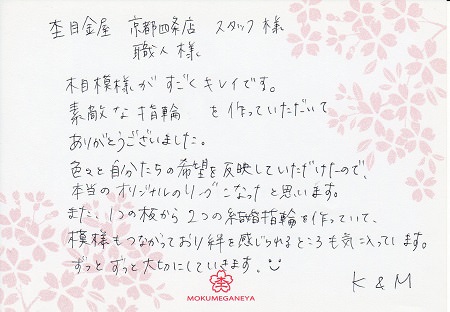 杢目金屋 京都四条店 スタッフ様
職人様
木目模様がすごくキレイです。
素敵な指輪を作っていただいて
ありがとうございました。
色々と自分たちの希望を反映していただけたので、
本当のオリジナルのリングになったと思います。
また、1つの板から2つの結婚指輪を作っていて、
模様もつながっており絆を感じられるところも気に入っています。
ずっとずっと大切にしていきます。
K & M
杢
MOKUMEGANEYA